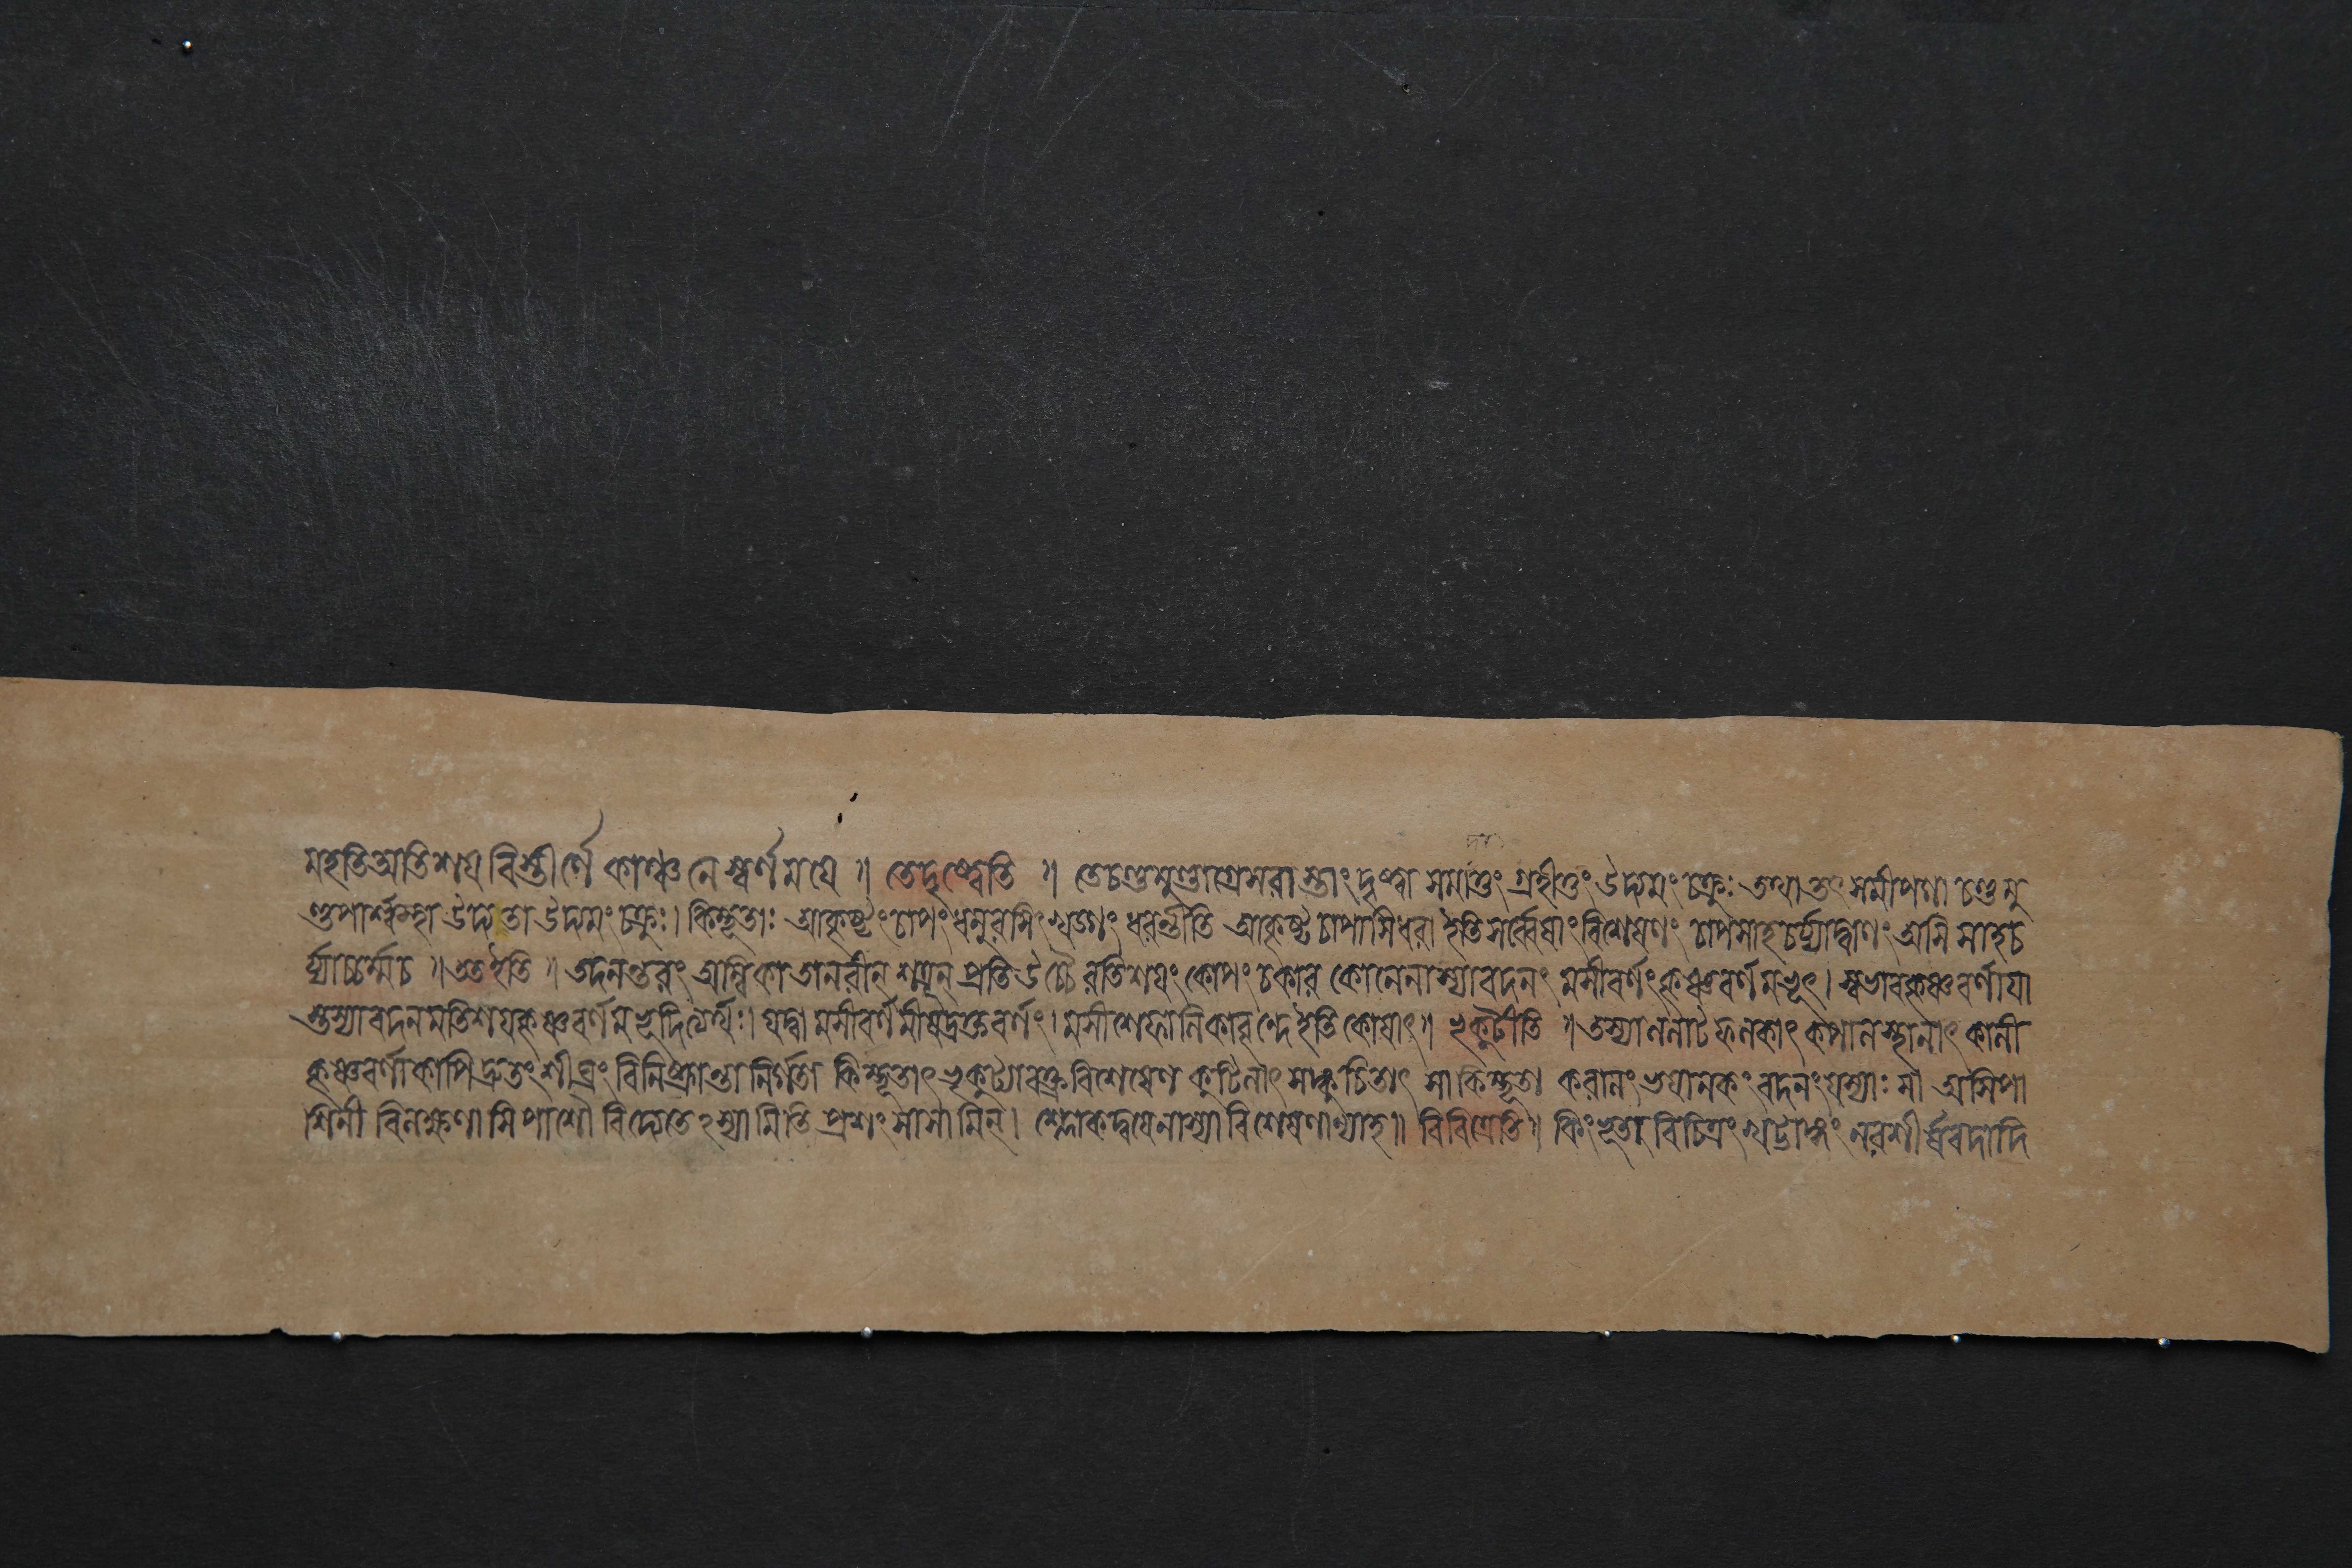 মহতিঅতিশয়বিস্তীর্ণে কাঞ্চনেস্বর্ণময়ে ॥ তেদৃষ্ট্বেতি ॥ তেচণ্ডমুণ্ডাগ্রেসরাস্তাংদৃষ্ট্বা সমাদাতুং গ্রহীতুং উদ্যমং চক্রুঃ তথা তৎসমীপগা চণ্ডমু
ণ্ডপার্শ্বস্থা উদ্যতা উদ্যমং চক্রুঃ। কিম্ভূতাঃ আকৃষ্টংচাপংধনুরসিংখড্গং ধরন্তীতি আকৃষ্টচাপাসিধরা ইতিসর্ব্বেষাংবিশেষণং চাপসাহচর্য্যাদ্বাণং অসি সাহচ
র্য্যাচ্চর্ম্মচ ॥ ততইতি ॥ তদনন্তরং অম্বিকা তানরীন্ শত্রূন্ প্রতিউচ্চৈরতিশয়ং কোপং চকার কোপেনাস্যাবদনং মসীবর্ণংকৃষ্ণবর্ণমভূৎ। স্বভাবকৃষ্ণবর্ণায়া
স্তস্যাবদনমতিশয়কৃষ্ণবর্ণমভূদিত্যর্থঃ। যদ্বা মসীবর্ণমীষদ্রক্তবর্ণং। মসীশেফালিকাবৃন্দেইতিকোষাৎ॥ ভ্রূকুটীতি ॥ তস্যাললাটফলকাৎ কপালস্থলাৎ কালী
কৃষ্ণবর্ণাকাপি দ্রুতংশীঘ্রং বিনিষ্ক্রান্তা নির্গতা কিম্ভূতাৎ ভ্রূকুট্যাবক্রবিশেষেণ কুটিলাৎ সঙ্কুচিতাৎ সা কিম্ভূতা করালং ভয়ানকং বদনংযস্যাঃ সা অসিপা
শিনী বিলক্ষণাসিপাশৌ বিদ্যেতেঽস্যামিতি প্রশংসায়ামিন্। শ্লোকদ্বয়েনাস্যাবিশেষণান্যাহ॥ বিচিত্রেতি॥ কিংভূতা বিচিত্রং খট্বাঙ্গং নরশীর্ষবদাদি